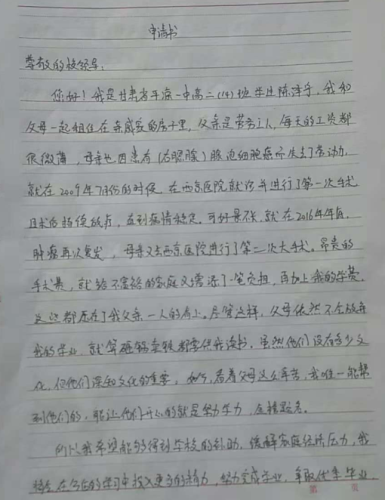 申请书
尊敬的校领导:
你好!我是甘肃省平凉一中高二(14)班学生陈泽宇,我和
父母一起租住在亲戚家的房子里,父亲是劳务工人,每天的工资都
很微薄,母亲也因患有(右腮腺)腺泡细胞癌而失去了劳动力
就在2009年7月份的时候 在西京医院就诊并进行了第一次手术
且术后持续放疗,直到病情稳定。可好景不长,就在2016年年前
肿瘤再次复发,母亲又去西京医院进行了第二次大手术。昂贵的
手术费,就给不富裕的家庭又增添了一笔负担,再加上我的学费,
这些都压在了我父亲一人的肩上。尽管这样,父母依然不会放弃
我的学业,就算砸锅卖铁都要供我读书,虽然他们没有多少文
化,但他们深知文化的重要,如今,看着父母这么辛苦,我唯一能帮
到他们的,能让他们开心的就是努力学习,
所以我希望能够得到学校的补助,缓解家庭经济压力,我
将会在今后的学习中投入更多的努力,努力完成学业,争取优秀毕业